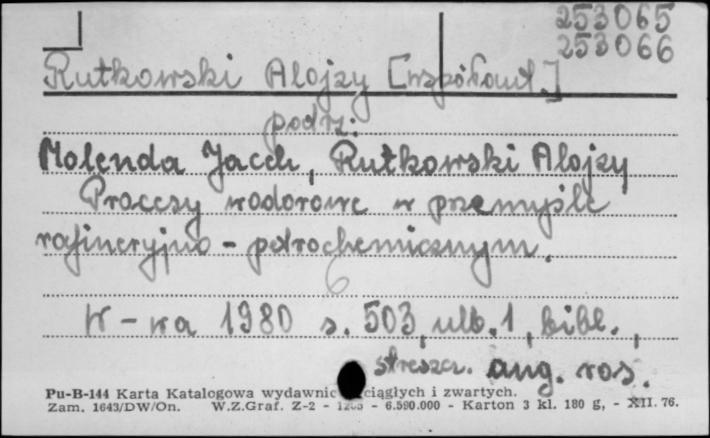 253065
253066
Rutkowski Alojzy [współaut.]
podrz:
Molenda Jacek, Rutkowski Alojzy
Procesy wodorowe w przemyśle
rafineryjno - petrochemicznym.
6
W-wa 1980 s. 503, ulb. 1, bibl.,
streszcz. ang. ros.
Pu-B-144 Karta Katalogowa wydawnic ciągłych i zwartych.
Zam. 1643/DW/On. W.Z.Graf. Z-2 - - 6.590.000 - Karton 3 kl. 180 g, - XII. 76.